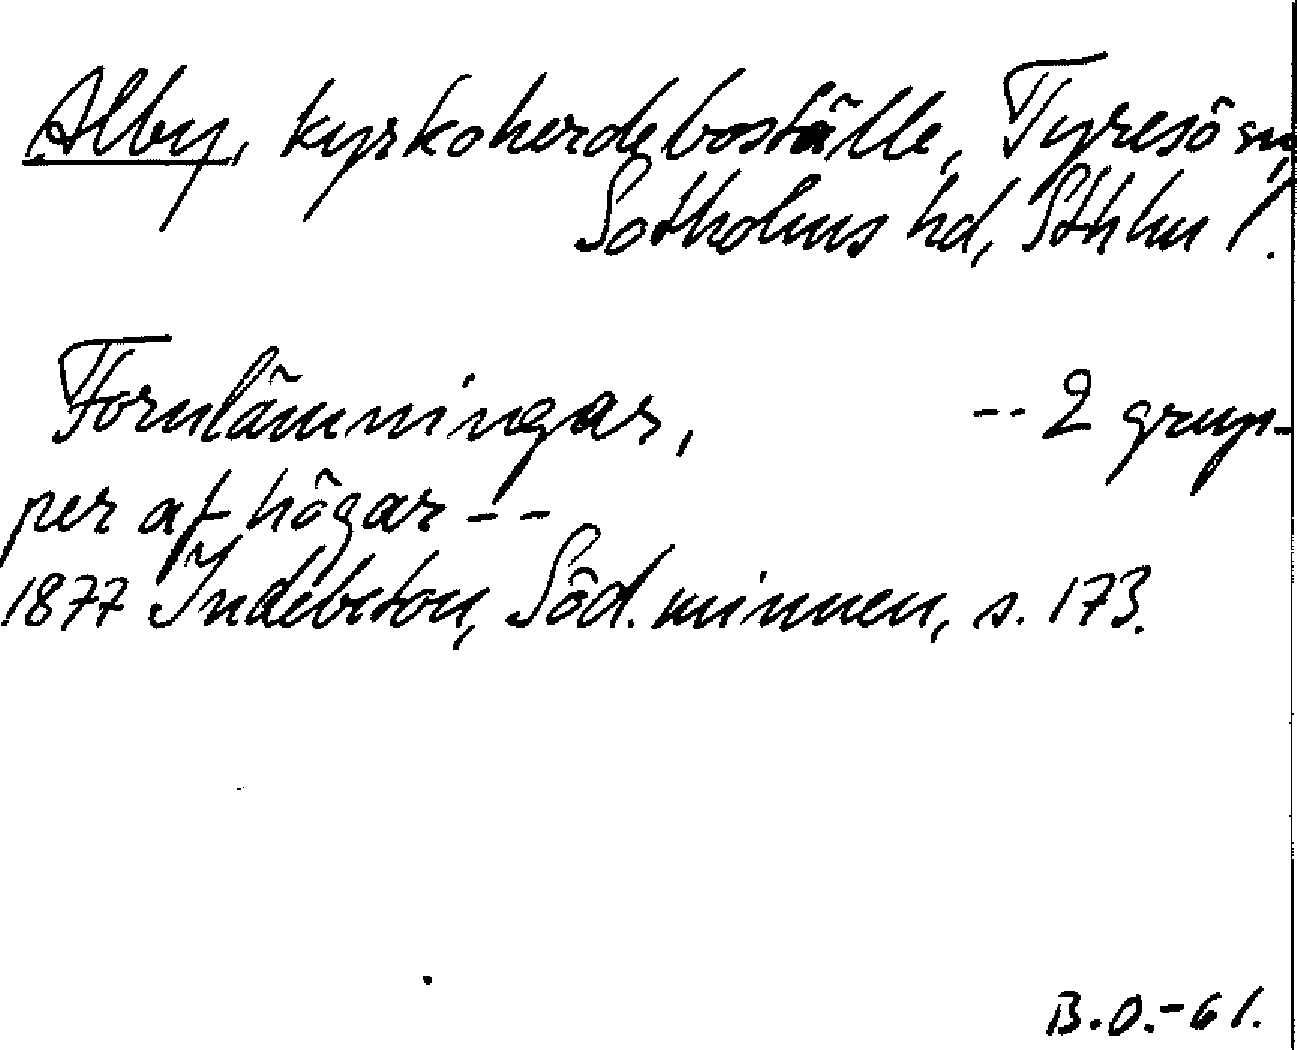 Alby, kyrkoherdeboställe, Tyresö sn,
Sotholms hd, Sthlm l.
Fornlämningar, -- 2 grup-
per af högar --
1877 Indebetou, Söd. minnen, s. 173.
B.O.-61.